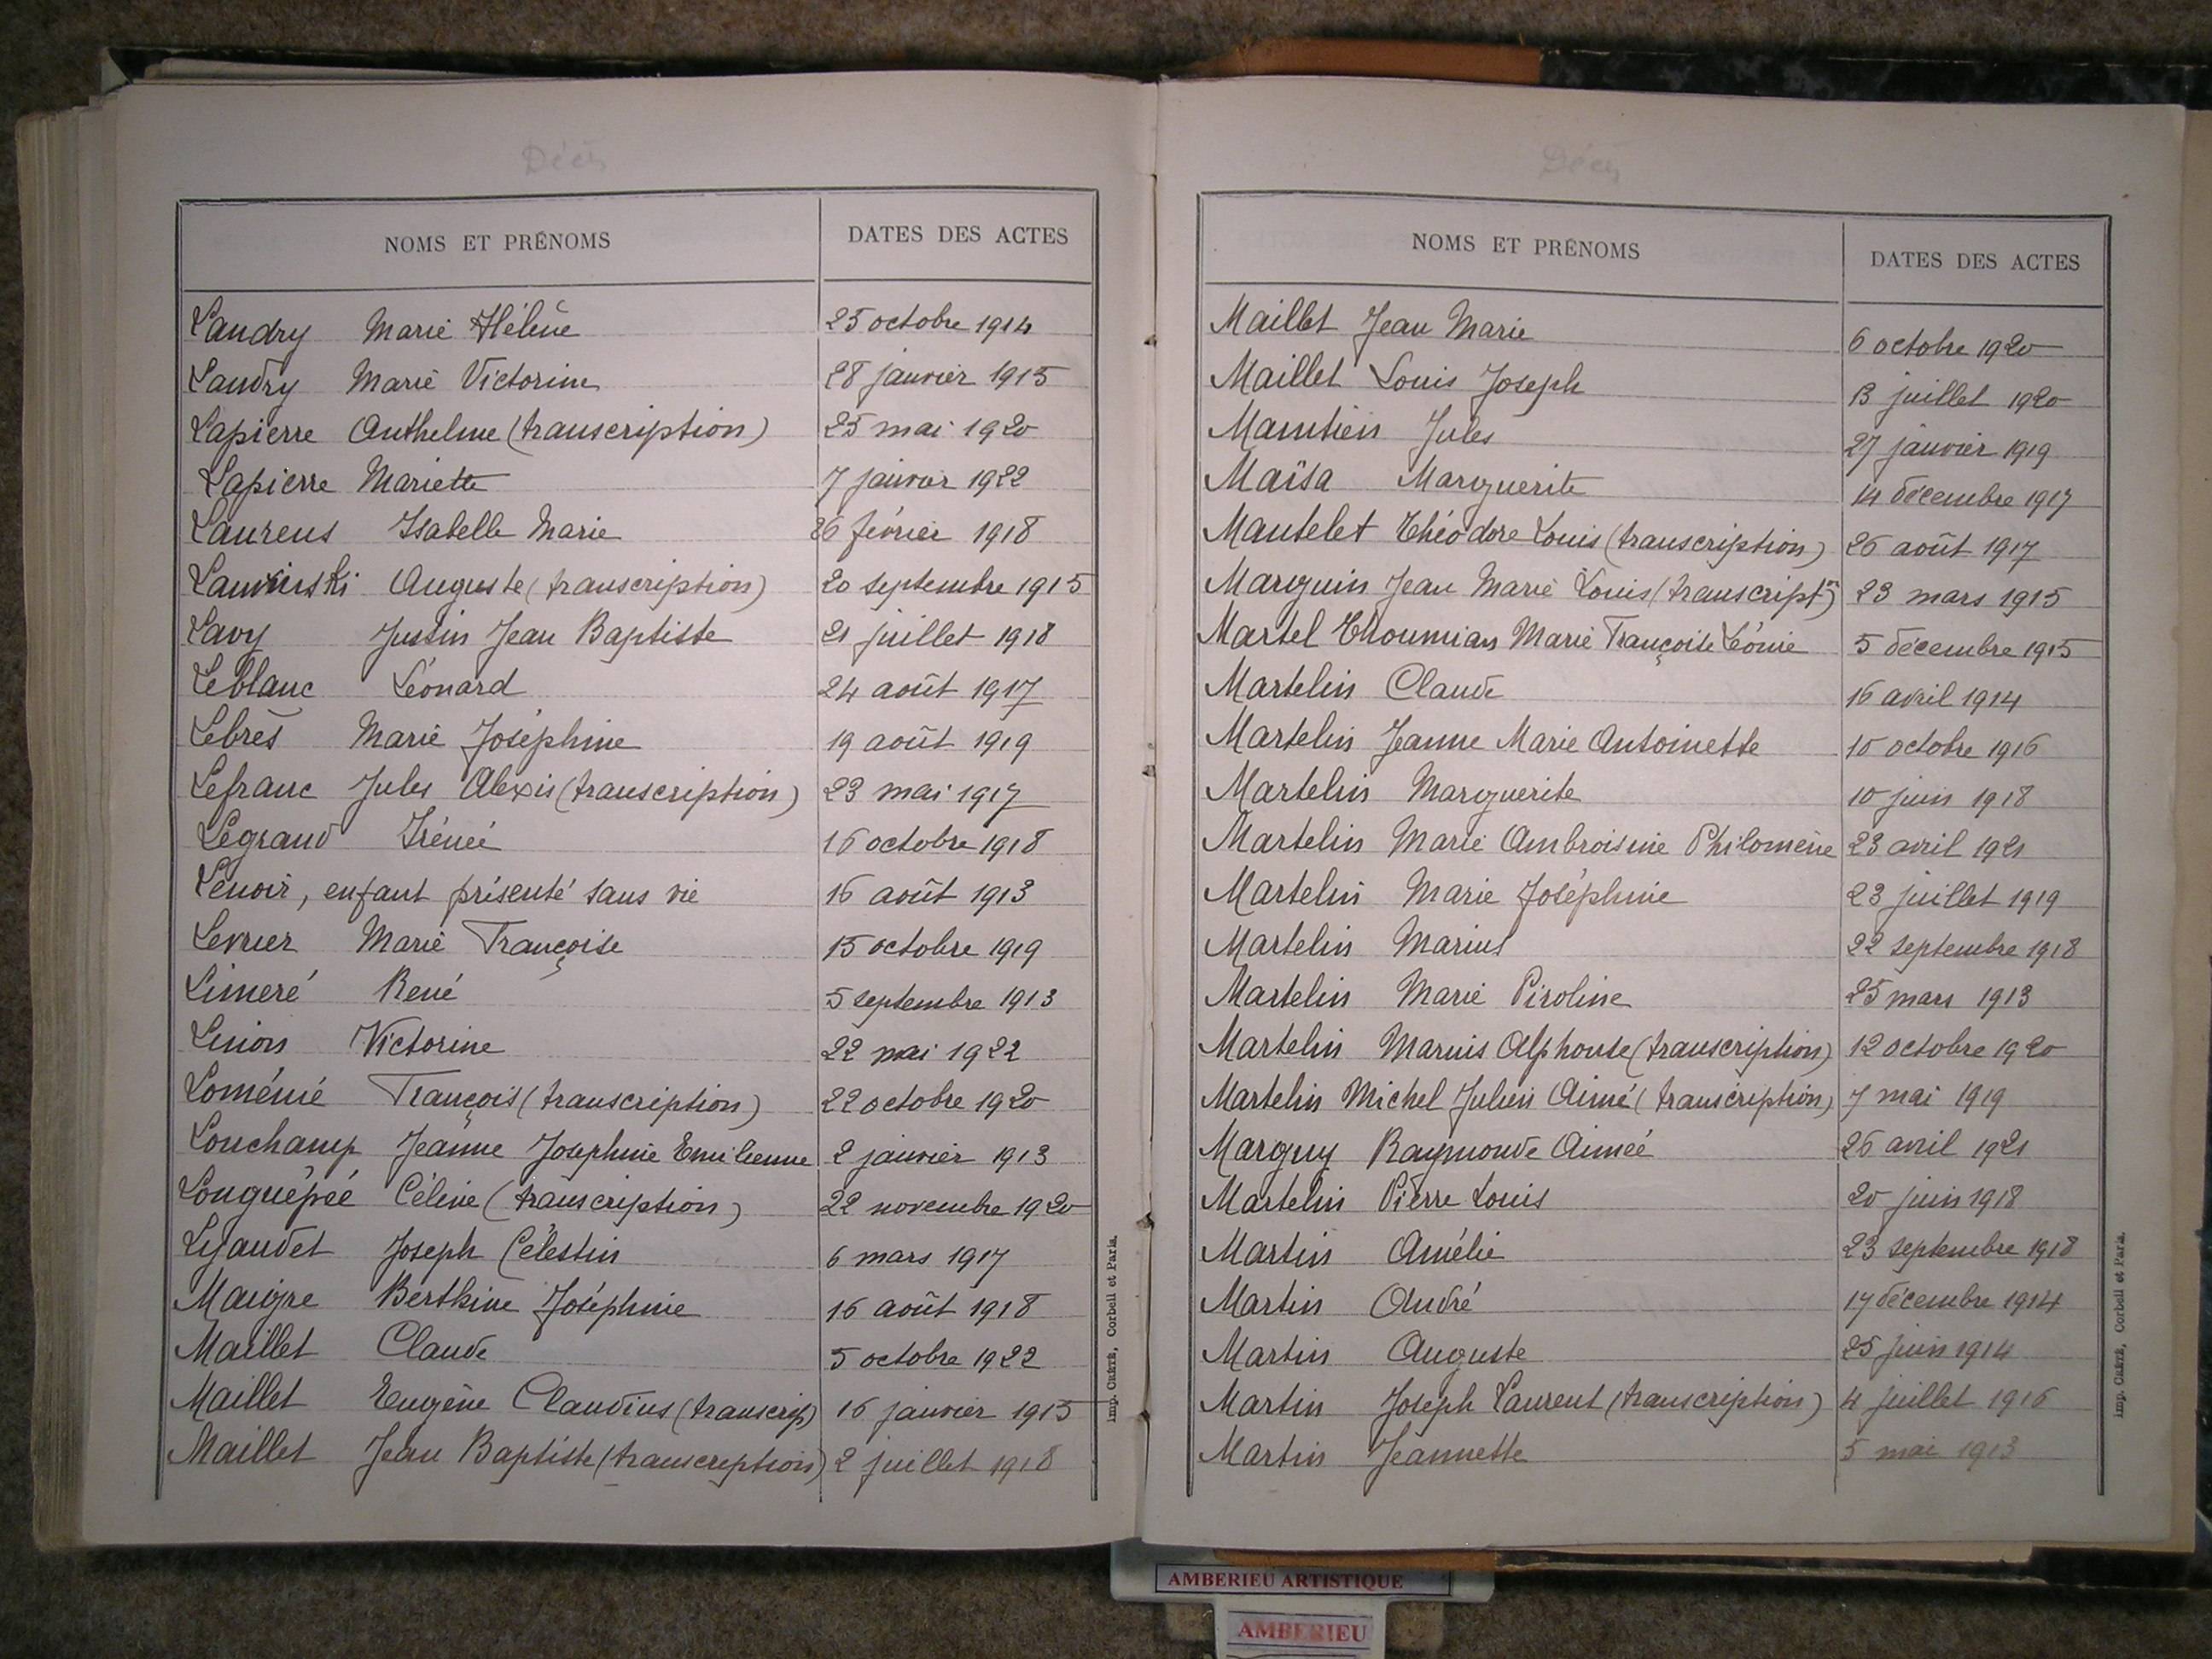 Décès
NOMS ET PRÉNOMS DATES DES ACTES
Landry Marie Hélène 25 octobre 1914
Landry Marie Victorine 28 janvier 1915
Lapierre Anthelme (transcription) 25 mai 1920
Lapierre Mariette 7 janvier 1922
Laurens Isabelle Marie 26 février 1918
Auguste (transcription) 20 septembre 1915
Lavy Justin Jean Baptiste 21 juillet 1918
Leblanc Léonard 24 août 1917
Lebrès Marie Joséphine 19 août 1919
Lefranc Jules Alexis (transcription) 23 mai 1917
Legrand Irénée 16 octobre 1918
Lenoir, enfant présenté sans vie 16 août 1913
Levrier Marie Françoise 15 octobre 1919
Limeré René 5 septembre 1913
Linion Victorine 22 mai 1922
Loménie François (transcription) 22 octobre 1920
Lonchamp Jeanne Josephine Emilienne 2 janvier 1913
Longuépée Céline (transcription) 22 novembre 1920
Lyaudet Joseph Célestin 6 mars 1917
Maigre Berthine Joséphine 16 août 1918
Maillet Claude 5 octobre 1922
Maillet Eugène Claudius (transcrip) 16 janvier 1915
Maillet Jean Baptiste (transcription) 2 juillet 1918
Imp. CRÉTÉ, Corbeil et Paris.
Décès
NOMS ET PRÉNOMS DATES DES ACTES
Maillet Jean Marie 6 octobre 1920
Maillet Louis Joseph 13 juillet 1920
Jules 27 janvier 1919
Maïsa Marguerite 14 décembre 1917
Mantelet Théodore Louis (transcription) 26 août 1917
Marguin Jean Marie Louis (transcript.on) 23 mars 1915
Martel Thoumian Marie Françoise Léonie 5 décembre 1915
Martelin Claude 16 avril 1914
Martelin Jeanne Marie Antoinette 10 octobre 1916
Martelin Marguerite 10 juin 1918
Martelin Marie Ambroisine Philomène 23 avril 1921
Martelin Marie Joséphine 23 juillet 1919
Martelin Marius 22 septembre 1918
Martelin Marie Piroline 25 mars 1913
Martelin Marius Alphonse (transcription) 12 octobre 1920
Martelin Michel Julien Aimé (transcription) 7 mai 1919
Marguy Raymonde Aimée 26 avril 1921
Martelin Pierre Louis 20 juin 1918
Martin Amélie 23 septembre 1918
Martin André 17 décembre 1914
Martin Auguste 25 juin 1914
Martin Joseph Laurent (transcription) 4 juillet 1916
Martin Jeannette 5 mai 1913
Imp. CRÉTÉ, Corbeil et Paris.
AMBERIEU ARTISTIQUE
AMBERIEU